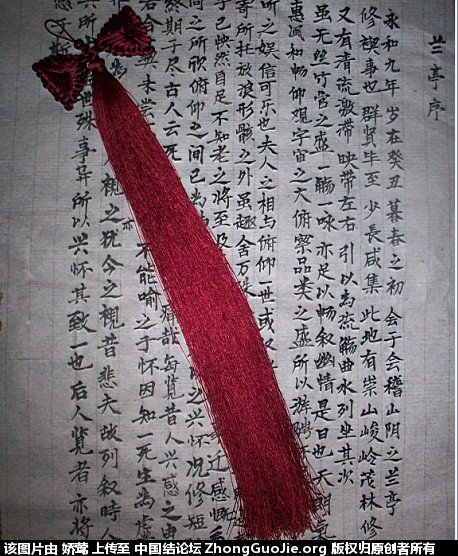 兰亭序
永和九年 岁在癸丑 暮春之初 会于会稽山阴之兰亭
修禊事也 群贤毕至 少長咸集 此地有崇山峻岭茂林修
又有清流激湍 映带左右 引以為流觞曲水列坐其次
虽无丝竹管之盛一觞一咏 亦足以畅叙幽情 是日也天朗氣
惠風和畅仰观宇宙之大俯察品类之盛所以游骋
听之娱信可乐也夫人之相与俯仰一世或取
寄所托放浪形骸之外虽趣舍万殊
己怏然自足不知老之将至及 迁感慨系
之向之所欣俯仰之间已为 之兴怀况修短
终期于尽古人云死 痛哉每览昔人兴感之由
若合 未尝 不能喻之于怀因知一死生為虚
为 视之犹今之視昔悲夫故列叙時人
亦
世殊事异所以兴怀其致一也后人览者亦将
感于斯
该图片由 娇莺 上传至 中国结论坛 ZhongGuoJie.org 版权归原创者所有